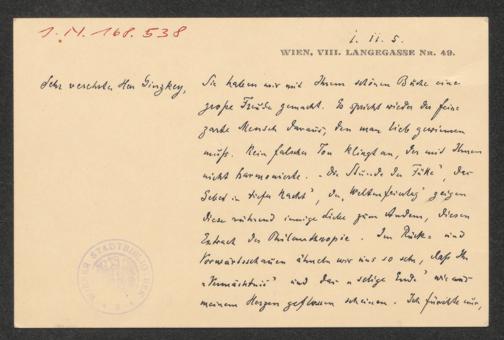 I.N. 168.538
1. II. 5.
WIEN, VIII. LANGEGASSE Nr. 49.
Sehr verehrter Herr Ginzkey,
Sie haben mir mit Ihrem schönen Buche eine
große Freude gemacht. Es spricht wieder der feine
zarte Mensch daraus, den man lieb gewinnen
muß. Kein falscher Ton klingt an, der mit Ihnen
nicht harmonierte. „Die Stunde der Güte“, „Das
Gebet in tiefer Nacht“, der „Weltenfeiertag“ zeigen
diese rührend innige Liebe zum Andern, diesen
Extract der Philanthropie. Im Rück- und
Vorwärtsschauen ähneln wir uns so sehr, daß Ihr
„Vermächtnis“ und das „selige Ende“ wie aus
meinem Herzen geflossen scheinen. Ich fürchte nur,
WIENER STADTBIBLIOTHEK